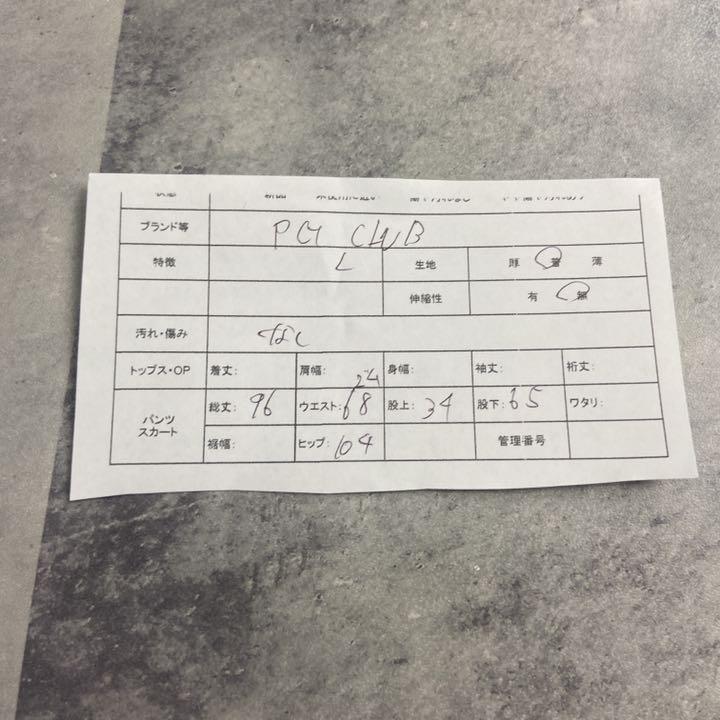 状態 新品 未使用に近い 傷や汚れなし やや傷や汚れあり
ブランド等 PGI CLUB
特徴 L 生地 厚 普 薄
伸縮性 有 無
汚れ・傷み なし
トップス・OP 着丈: 肩幅: 身幅: 袖丈: 裄丈:
パンツ スカート 総丈: 96 ウエスト: 68 股上: 34 股下: 65 ワタリ:
裾幅: ヒップ: 104 管理番号